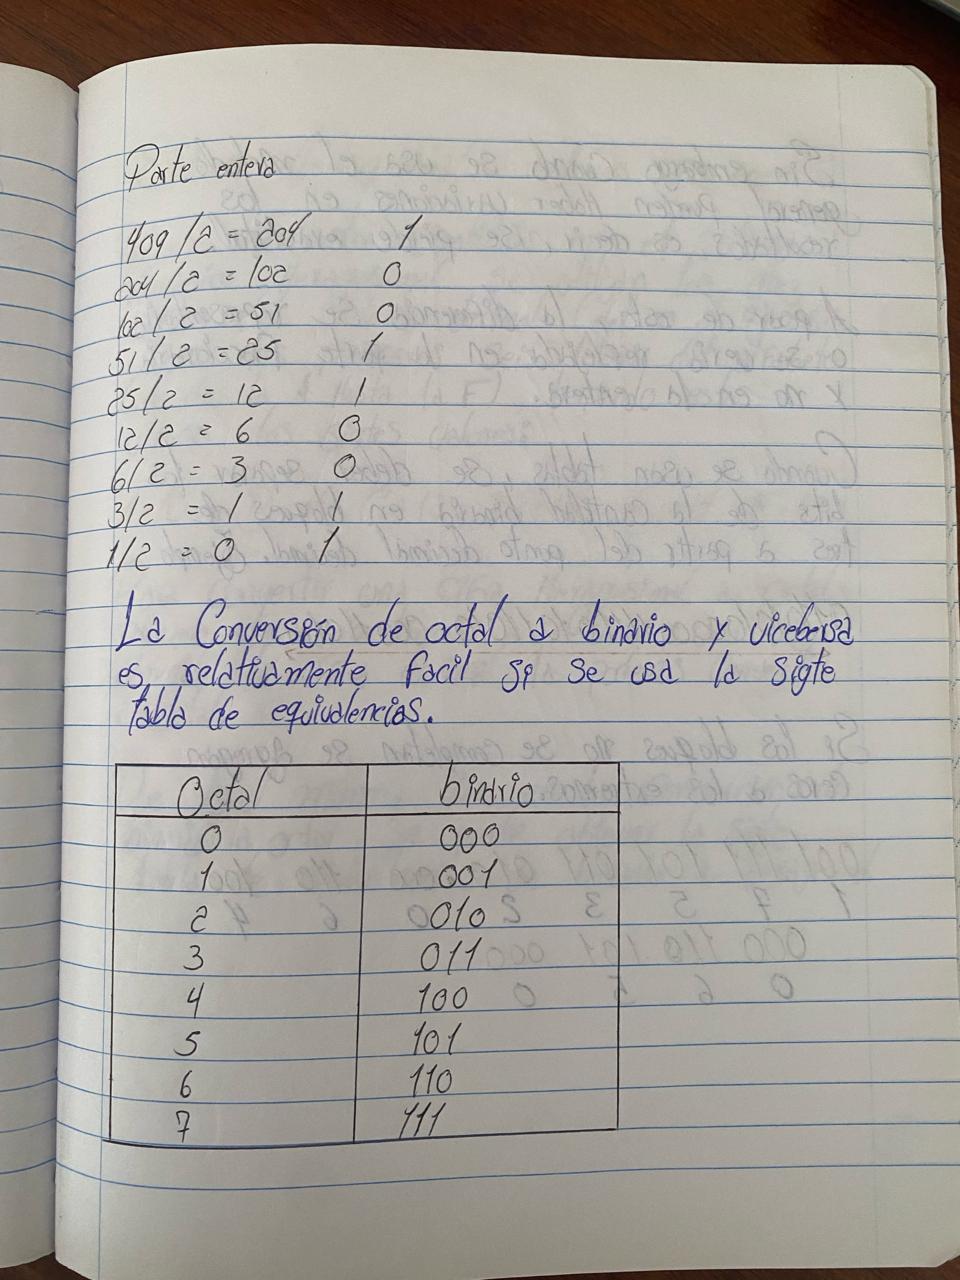 Parte entera
409/2 = 204 1
204/2 = 102 0
102/2 = 51 0
51/2 = 25 1
25/2 = 12 1
12/2 = 6 0
6/2 = 3 0
3/2 = 1 1
1/2 = 0 1
La Conversión de octal a binario y vicebersa
es relativamente facil si se usa la sigte
tabla de equivalencias.
Octal binario
0 000
1 001
2 0010
3 011
4 100
5 101
6 110
7 111